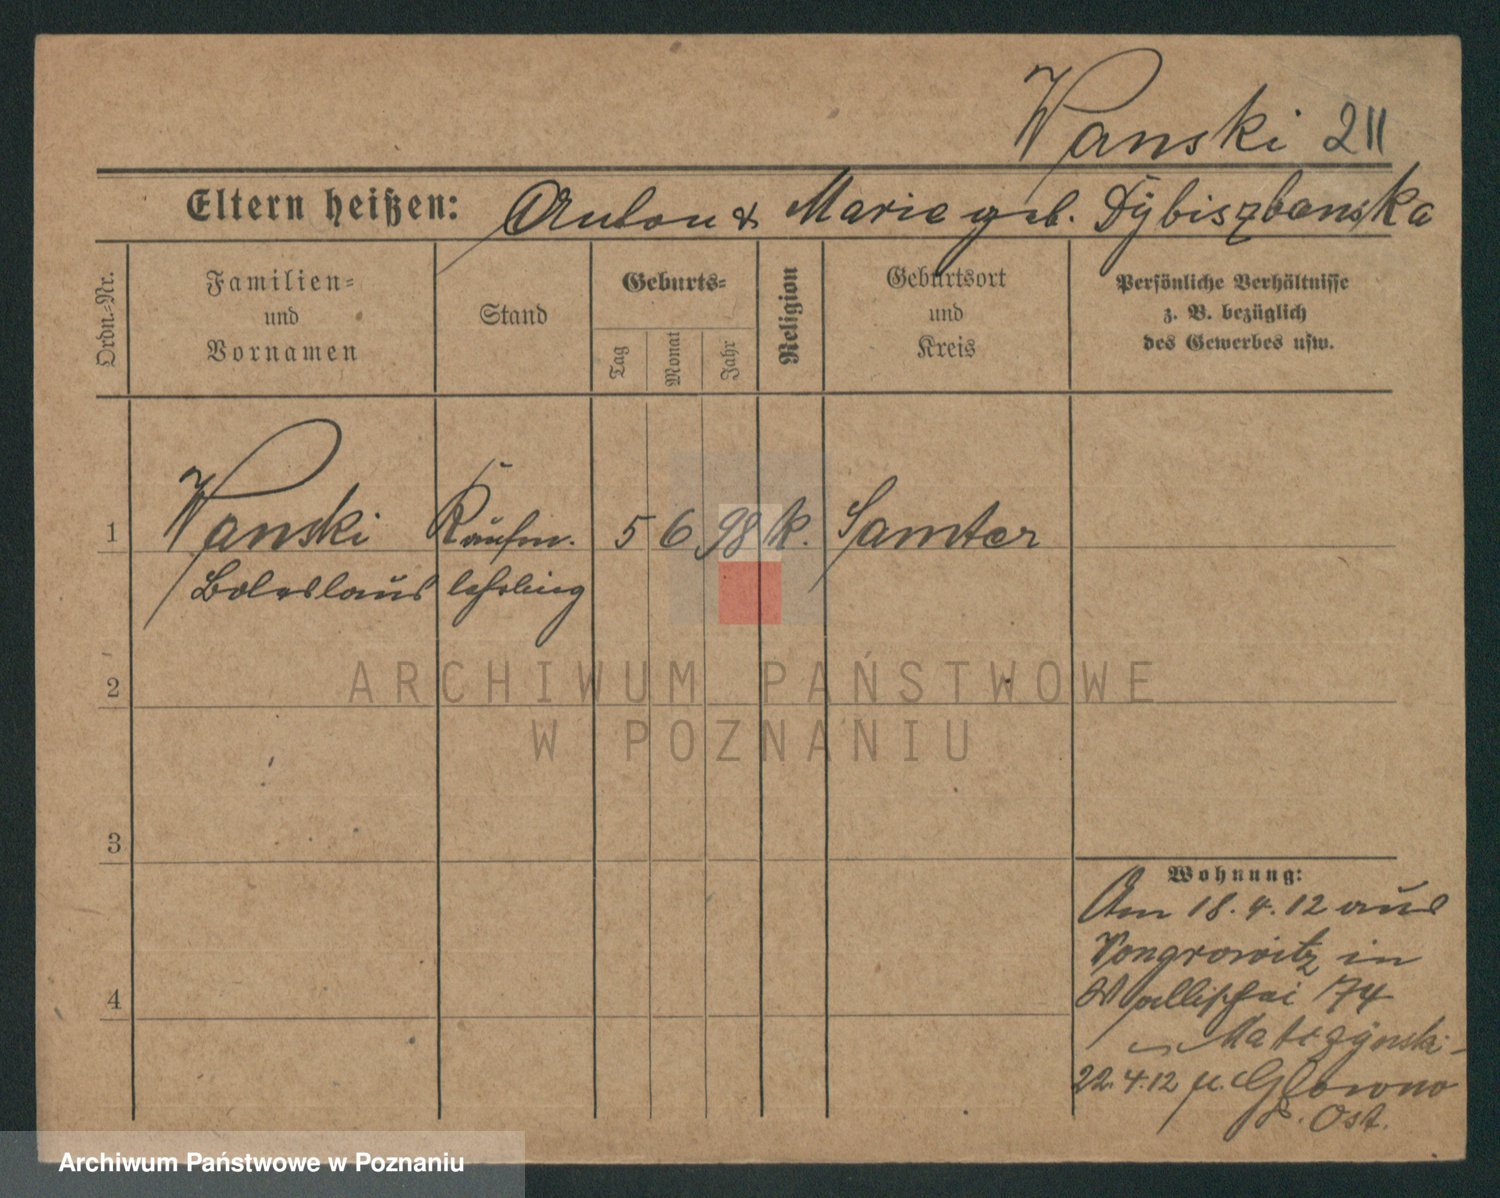 Wanski 211
Eltern heißen: Anton & Marie geb. Dÿbiszbanska
Ordn.-Nr.
Familien-
und
Vornamen
Stand
Geburts-
Tag
Monat
Jahr
Religion
Geburtsort
und
Kreis
Persönliche Verhältnisse
z. B. bezüglich
des Gewerbes usw.
1 Wanski Kaufm. 5 6 98 k. Samter
Boleslaus lehrling
2
3
4
Wohnung:
Am 18.4.12 aus
Wongrowitz in
Wallischei 74
22.4.12 n. Glowno
b. Ost.
ARCHIWUM PAŃSTWOWE
W POZNANIU
Archiwum Państwowe w Poznaniu